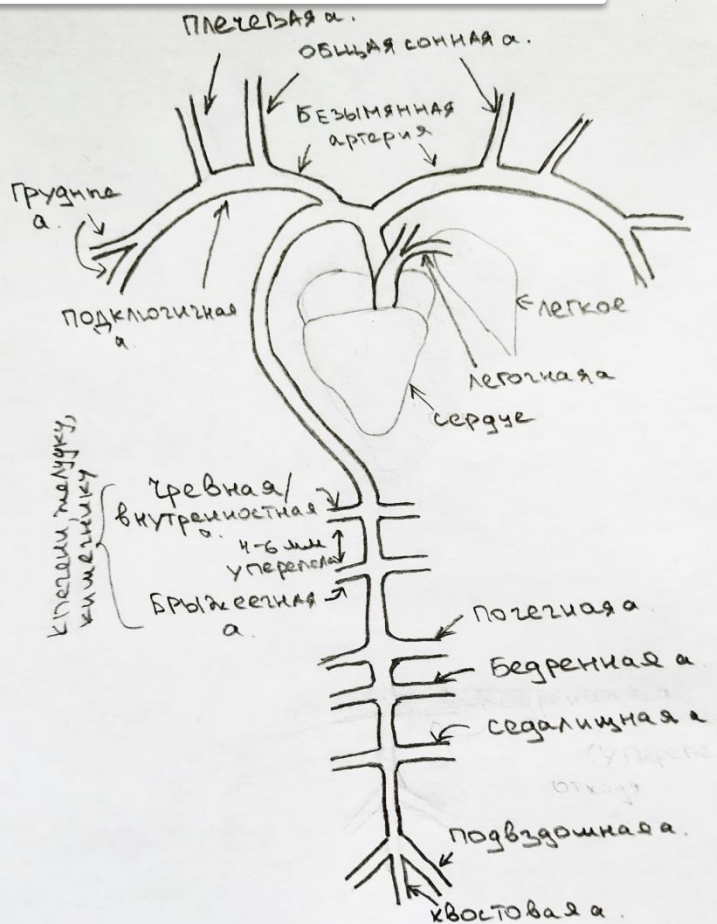 ПЛЕЧЕВАЯ а.
ОБЩАЯ СОННАЯ а.
БЕЗЫМЯННАЯ
артерия
ГРУДНЫЕ
а.
ПОДКЛЮЧИЧНАЯ
а.
ЛЕГКОЕ
ЛЕГОЧНАЯ а
сердце
К печени, желудку,
кишечнику
Чревная/
внутренностная
а.
4-6 мм
у перепела
БРЫЖЕЕЧНАЯ
а.
ПОЧЕЧНАЯ а
БЕДРЕННАЯ а.
СЕДАЛИЩНАЯ а
ПОДВЗДОШНАЯ а.
КВОСТОВАЯ а.